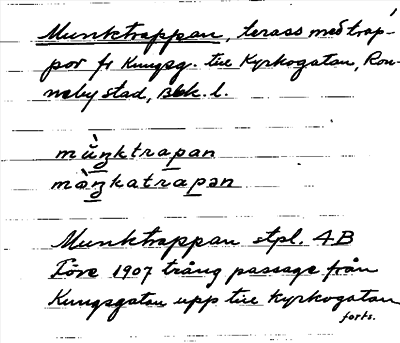 Munktrappan, terass med trap-
por fr Kungsg. till Kyrkogatan, Ron-
neby stad, Blek. l.
mùŋktrapan
mòŋkatrapən
Munktrappan stpl. 4B
Före 1907 trång passage från
Kungsgatan upp till Kyrkogatan
forts.